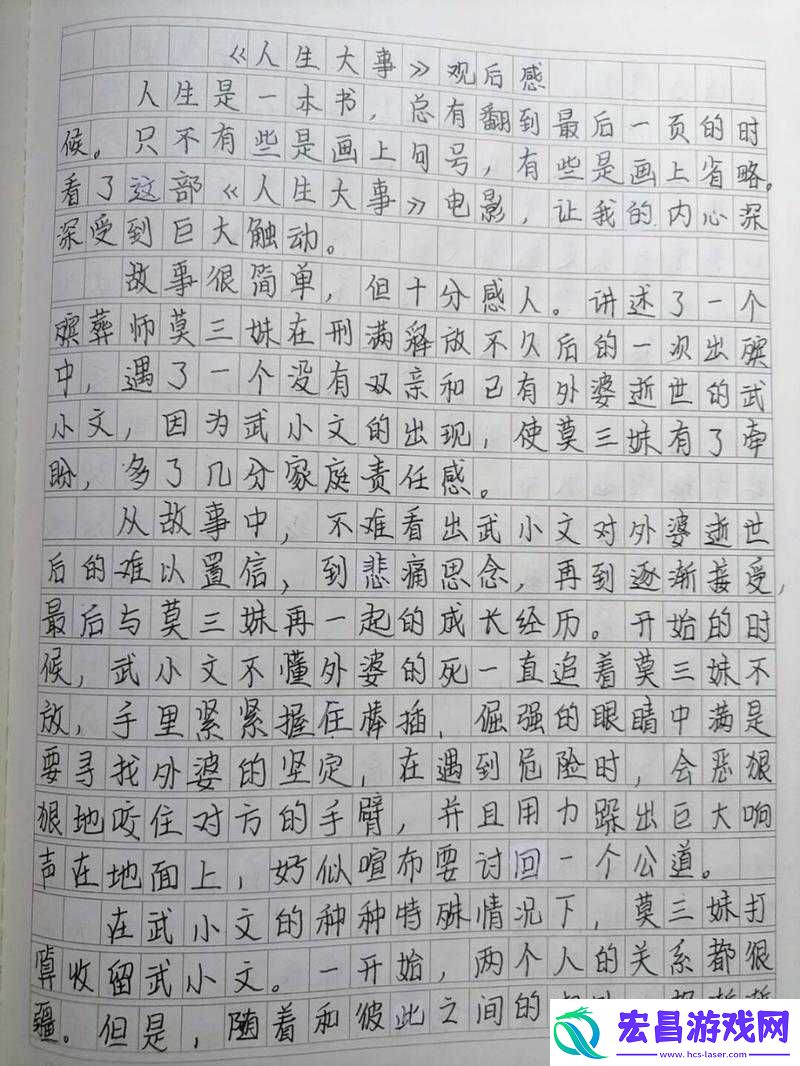 《人生大事》观后感
人生是一本书，总有翻到最后一页的时
候。只不有些是画上句号，有些是画上省略。
看了这部《人生大事》电影，让我的内心深
深受到巨大触动。
故事很简单，但十分感人。讲述了一个
殡葬师莫三妹在刑满释放不久后的一次出殡
中，遇了一个没有双亲和已有外婆逝世的武
小文，因为武小文的出现，使莫三妹有了牵
盼，多了几分家庭责任感。
从故事中，不难看出武小文对外婆逝世
后的难以置信，到悲痛思念，再到逐渐接受，
最后与莫三妹再一起的成长经历。开始的时
候，武小文不懂外婆的死一直追着莫三妹不
放，手里紧紧握住棒插，倔强的眼睛中满是
要寻找外婆的坚定，在遇到危险时，会恶狠
狠地咬住对方的手臂，并且用力跺出巨大响
声在地面上，好似喧布要讨回一个公道。
在武小文的种种特殊情况下，莫三妹打
算收留武小文。一开始，两个人的关系都很
疆。但是，随着和彼此之间的
宏昌游戏网
www.hcs-laser.com